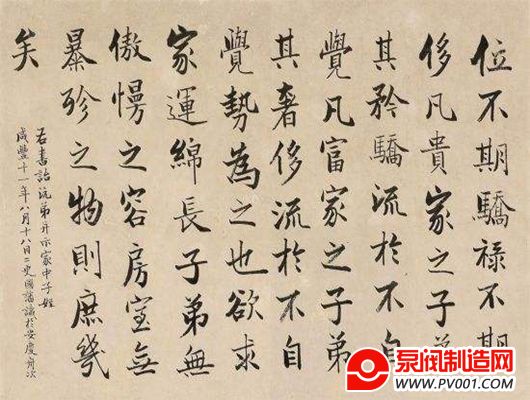 位不期驕祿不期
侈凡貴家之子弟
其矜驕流於不自
覺凡富家之子弟
其奢侈流於不自
覺勢為之也欲求
家運綿長子弟無
傲慢之容房室無
暴殄之物則庶幾
矣
右書詒沅弟并示家中子姪
咸豐十一年八月十八日二更國藩識於安慶舟次
泵阀制造网
WWW.PV001.COM